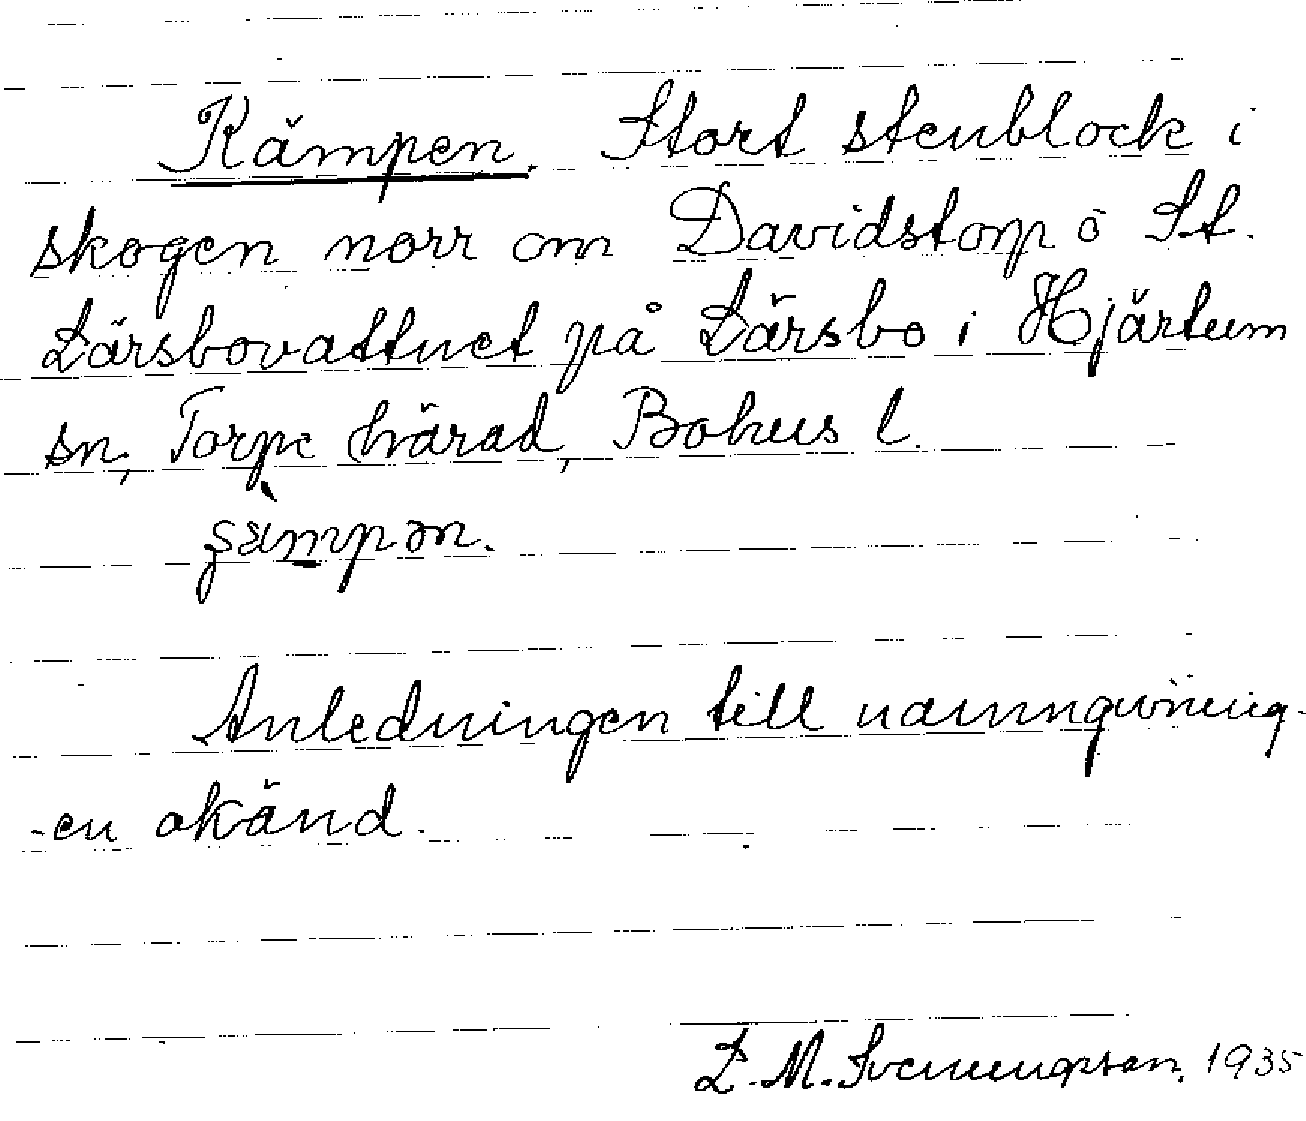 Kämpen. Stort stenblock i
skogen norr om Davidstorp o St.
Lärsbovattnet på Lärsbo i Hjärtum
sn, Torpe härad, Bohus l.
Anledningen till namngivning-
-en okänd.
L. M. Svenungsson. 1935